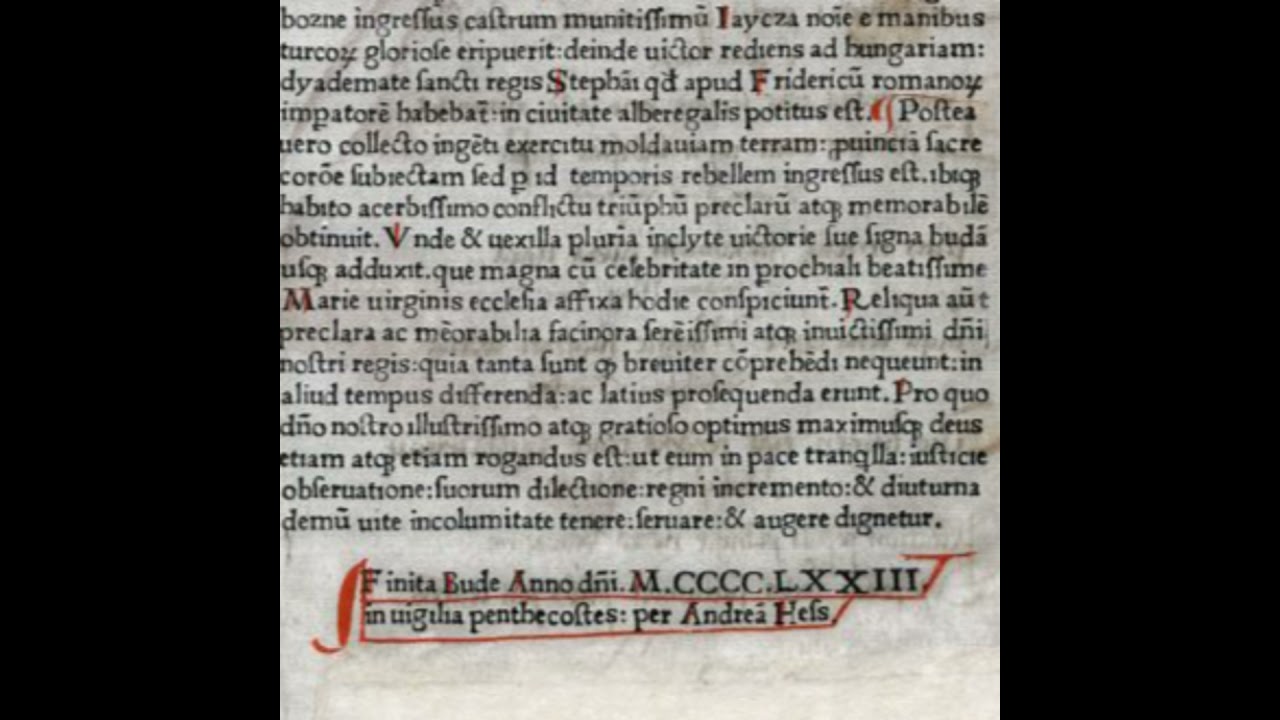 bozne ingreſſus caſtrum munitiſſimū Iaycza noīe e manibus
turcoꝝ glorioſe eripuerit:deinde uictor rediens ad hungariam:
dyademate ſancti regis Stephāı qđ apud Fridericū romanoꝝ
imꝑatorē habebat̄:in ciuitate alberegalis potitus eſt. ¶ Poſtea
uero collecto ingētı exercıtu moldauıam terram:ꝓuincıā ſacre
corōe ſubıectam ſed ꝑ ıd temporis rebellem ingreſſus eſt.ıbıqꝫ
habıto acerbıſſımo conflıctu trıūphū preclarū atqꝫ memorabılē
obtinuit. Vnde & uexılla plurıa inclyte uıctorie ſue ſigna budā
uſqꝫ adduxıt.que magna cū celebrıtate ın ꝑochıalı beatıſſime
Marie uirginis eccleſıa affıxa hodıe conſpıcıunt̄. Relıqua aūt
preclara ac mēorabılıa facinora ſerēıſſimi atqꝫ inuıctıſſımi dn̄i
noſtri regis:quia tanta ſunt ꝙ breuiter cōprehēdı nequeunt:in
aliud tempus dıfferenda:ac latıus proſequenda erunt. Pro quo
dn̄o noſtro ılluſtrıſſımo atqꝫ gratıoſo optimus maxımuſqꝫ deus
etıam atqꝫ etiam rogandus eſt:ut eum in pace tranqlla:iuſtıcıe
obſeruatıone:ſuorum dılectıone:regni incremento:& dıuturna
demū uıte incolumıtate tenere:ſeruare:& augere dıgnetur.
Finita Bude Anno dn̄i. M.CCCC.LXXIII.
in uıgılıa penthecoſtes: per Andreā Heſs.